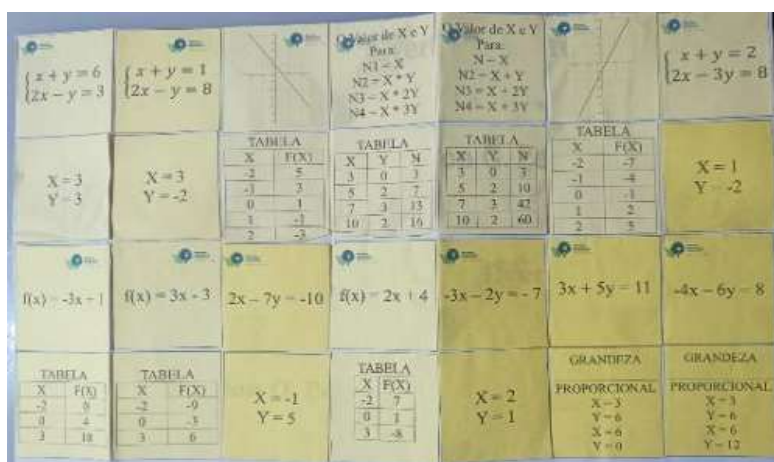 x + y = 6
2x − y = 3
x + y = 1
2x − y = 8
O Valor de X e Y
Para:
N1 = X
N2 = X * Y
N3 = X * 2Y
N4 = X * 3Y
O Valor de X e Y
Para:
N = X
N2 = X + Y
N3 = X + 2Y
N4 = X + 3Y
x + y = 2
2x − 3y = 8
X = 3
Y = 3
X = 3
Y = -2
TABELA
X F(X)
-2 5
-1 3
0 1
1 -1
2 -3
TABELA
X Y N
3 0 3
5 2 7
7 3 13
10 2 16
TABELA
X Y N
3 0 3
5 2 10
7 3 42
10 2 60
TABELA
X F(X)
-2 -7
-1 -4
0 -1
1 2
2 5
X = 1
Y = -2
f(x) = -3x + 1
f(x) = 3x - 3
2x − 7y = -10
f(x) = 2x + 4
-3x − 2y = - 7
3x + 5y = 11
-4x − 6y = 8
TABELA
X F(X)
-2 0
0 4
3 10
TABELA
X F(X)
-2 -9
0 -3
3 6
X = -1
Y = 5
TABELA
X F(X)
-2 7
0 1
3 -8
X = 2
Y = 1
GRANDEZA
PROPORCIONAL
X = 3
Y = 6
X = 6
Y = 0
GRANDEZA
PROPORCIONAL
X = 3
Y = 6
X = 6
Y = 12